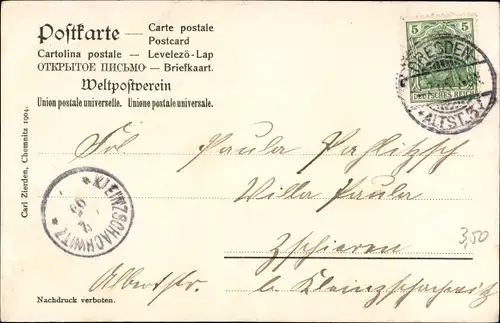 Postkarte — Carte postale
Postcard
Cartolina postale — Levelezö-Lap
ОТКРЫТОЕ ПИСЬМО — Briefkaart.
Weltpostverein
Union postale universelle. Unione postale universale.
5 5
DEUTSCHES REICH
DRESDEN
*ALTST.3
Carl Zierden, Chemnitz 1904.
Frl Paula
Villa Paula
KLEINZSCHACHWITZ
Zschieren
3,50
Albertstr. b. Kleinzschachwitz
Nachdruck verboten.